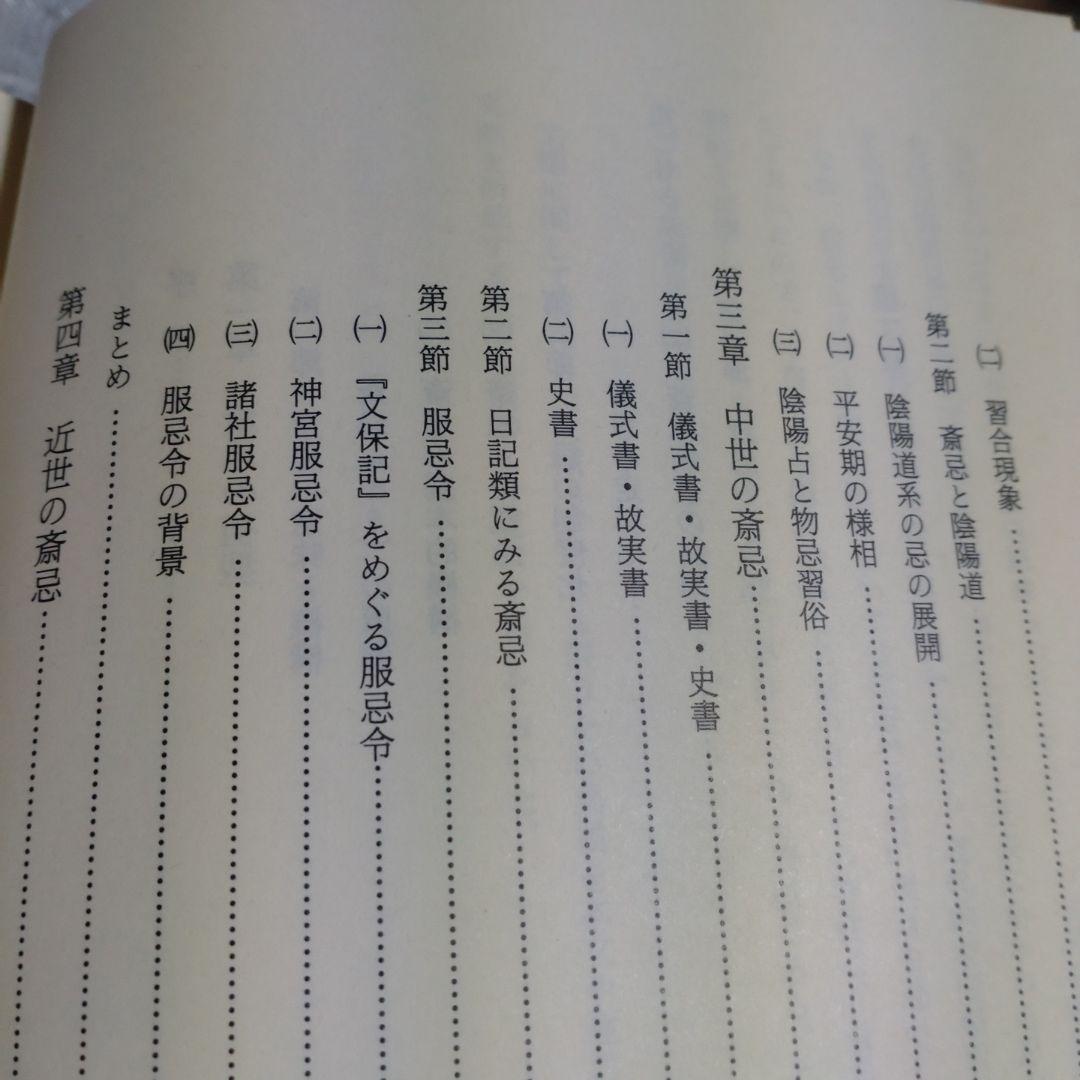 ㈡ 習合現象
第二節 斎忌と陰陽道
㈠ 陰陽道系の忌の展開
㈡ 平安期の様相
㈢ 陰陽占と物忌習俗
第三章 中世の斎忌
第一節 儀式書・故実書・史書
㈠ 儀式書・故実書
㈡ 史書
第二節 日記類にみる斎忌
第三節 服忌令
㈠ 『文保記』をめぐる服忌令
㈡ 神宮服忌令
㈢ 諸社服忌令
㈣ 服忌令の背景
まとめ
第四章 近世の斎忌